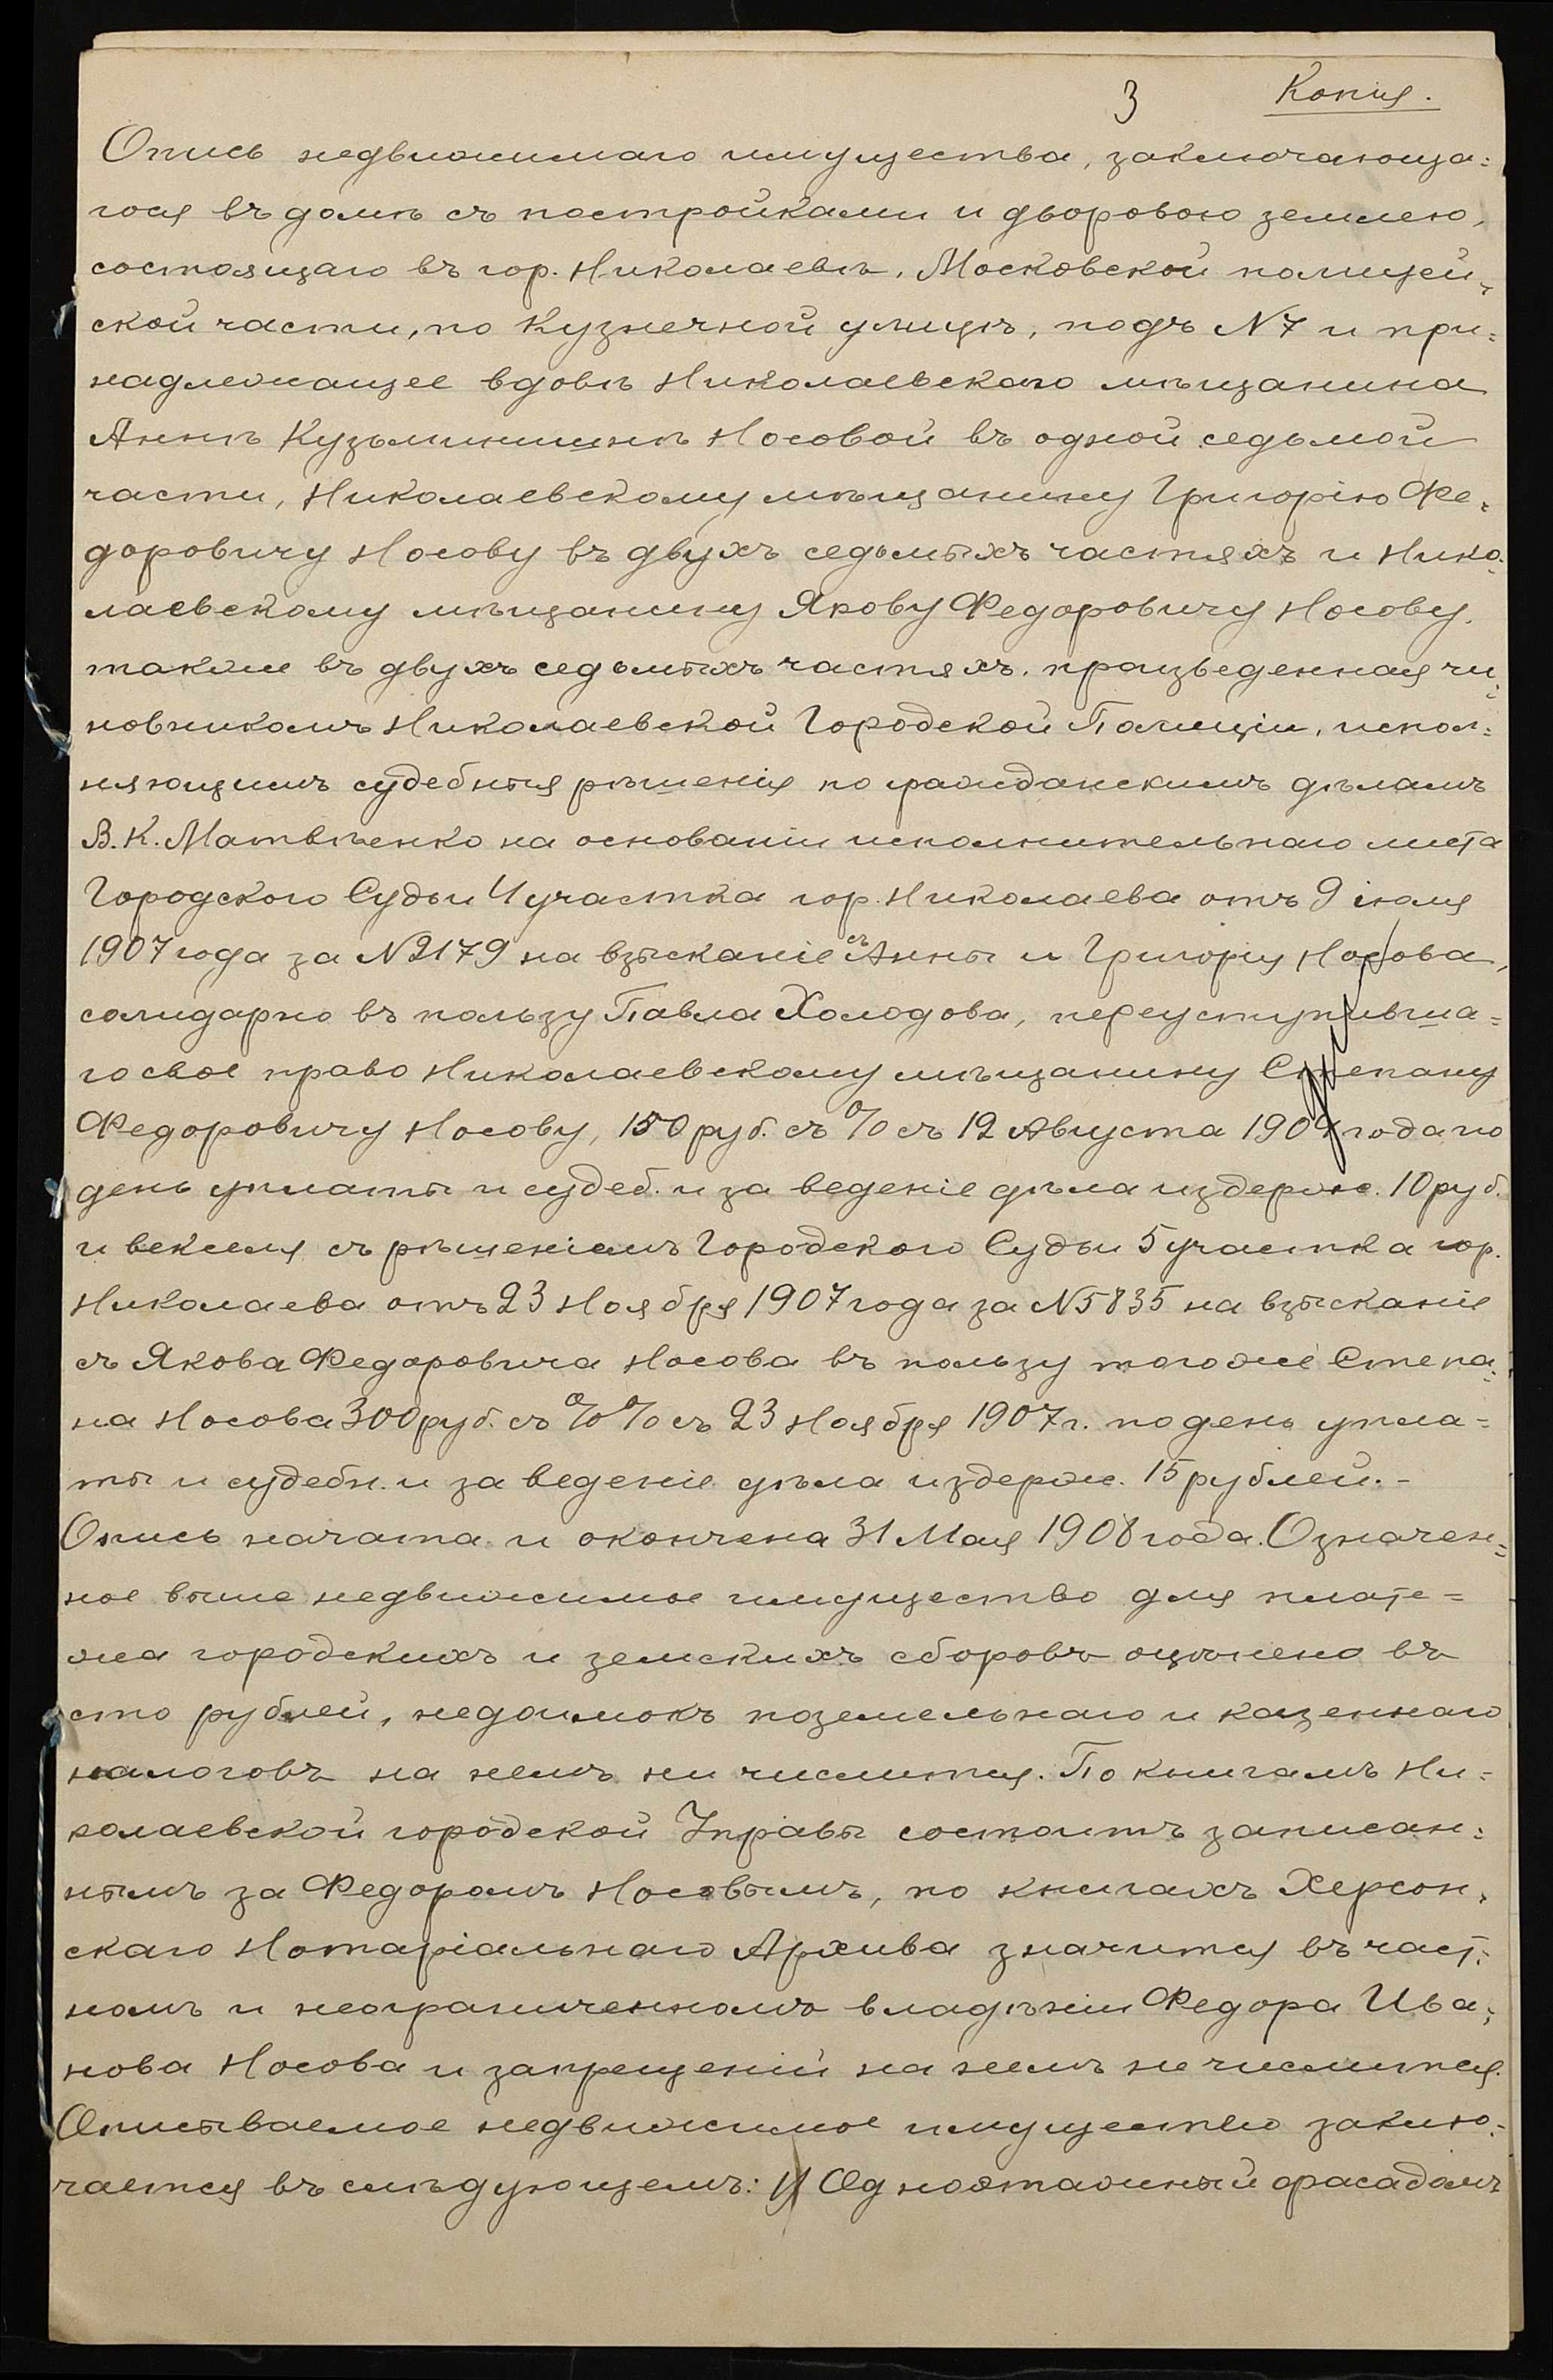 3 Копія.
Опись недвижимаго имущества, заключающа=
гося въ домѣ съ постройками и дворовою землею,
состоящаго въ гор. Николаевѣ, Московской полицей=
ской части, по Кузнечной улицѣ, подъ №7 и при=
надлежащее вдовѣ Николаевскаго мѣщанина
Аннѣ Кузьминишнѣ Носовой въ одной седьмой
части, Николаевскому мѣщанину Григорію Ѳе=
доровичу Носову въ двухъ седьмыхъ частяхъ и Нико=
лаевскому мѣщанину Якову Ѳедоровичу Носову,
также въ двухъ седьмыхъ частяхъ, произведенная чи=
новникомъ Николаевской Городской Полиціи, испол=
няющимъ судебныя рѣшенія по гражданскимъ дѣламъ
В. К. Матвѣенко на основаніи исполнительнаго листа
Городского Судьи 4 участка гор. Николаева отъ 9 іюля
1907 года за №2179 на взысканіе съ Анны и Григорія Носова,
солидарно въ пользу Павла Холодова, переуступивша=
го свое право Николаевскому мѣщанину Степану
Ѳедоровичу Носову, 150 руб. съ % съ 12 Августа 190 года по
день уплаты и судеб. и за веденіе дѣла издерж. 10 руб.
и векселя съ рѣшеніемъ Городского Судьи 5 участка гор.
Николаева отъ 23 Ноября 1907 года за №5835 на взысканіе
съ Якова Ѳедоровича Носова въ пользу того же Степа=
на Носова 300 руб. съ %% съ 23 Ноября 1907 г. по день упла=
ты и судебн. и за веденіе дѣла издерж. 15 рублей.-
Опись начата и окончена 31 Мая 1908 года. Означен=
ное выше недвижимое имущество для плате=
жа городскихъ и земскихъ сборовъ оцѣнено въ
сто рублей, недоимокъ поземельнаго и казеннаго
налоговъ на немъ ни числится. По книгамъ Ни=
колаевской городской Управы состоитъ записан=
нымъ за Ѳедоромъ Носовымъ, по книгахъ Херсон=
скаго Нотаріальнаго Архива значится въ част=
номъ и неограниченномъ владѣніи Ѳедора Ива=
нова Носова и запрещеній на немъ не числится.
Описываемое недвижимое имущество заклю=
чается въ слѣдующемъ: 1/ Одноэтажный фасадомъ